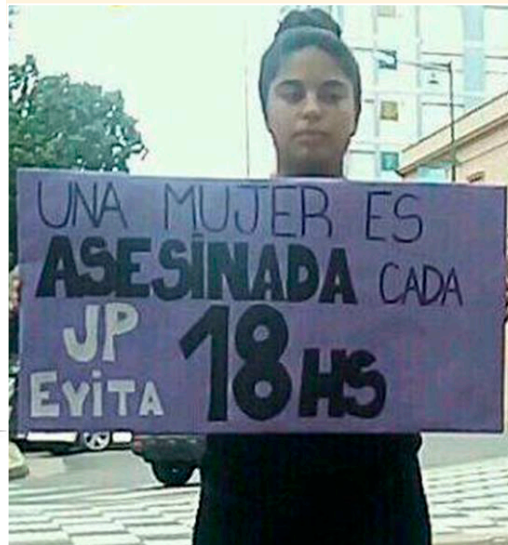 UNA MUJER ES
ASESINADA CADA
JP 18HS
EVITA